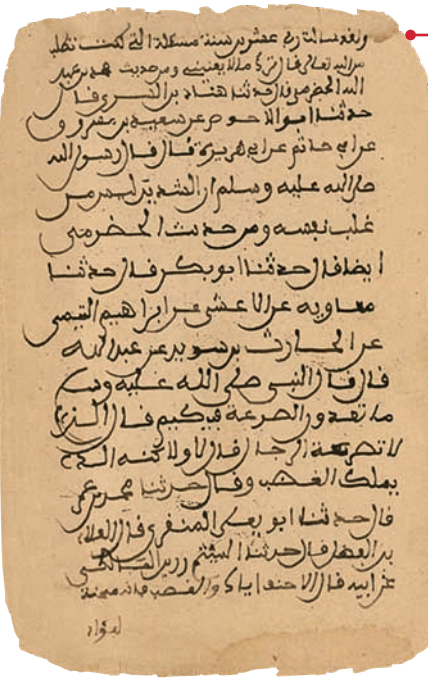 ولقد سالت ربي عشرين سنة مسئلة التي كنت نطلب
من الله تعالى فال ترك ما لا يعنيني ومن حديث محمد بن عبد
الله الحضرمي فال حدثنا هناد بن السري فال
حدثنا ابو الاحوص عن سعيد بن مسروق
عن ابي حازم عن ابي هريرة فال فال رسول الله
صلى الله عليه وسلم ان الشديد ليس من
غلب نفسه ومن حديث الحضرمي
ايضا فال حدثنا ابو بكر فال حدثنا
معاويه عن الاعمش عن ابراهيم التيمي
عن الحارث بن سويد عن عبد الله
فال فال النبي صلى الله عليه وسلم
ما تعدون الصرعة فيكم فال الذي
لا تصرعه الرجال فال لا ولاكنه الذي
يملك الغضب وفال حدثنا محمد بن عمر
فال حدثنا ابو يعلى المنقري فال العلاء
بن الفضل فال حدثنا الهيثم
عن ابيه فال الاحنف اياك والغضب فانه